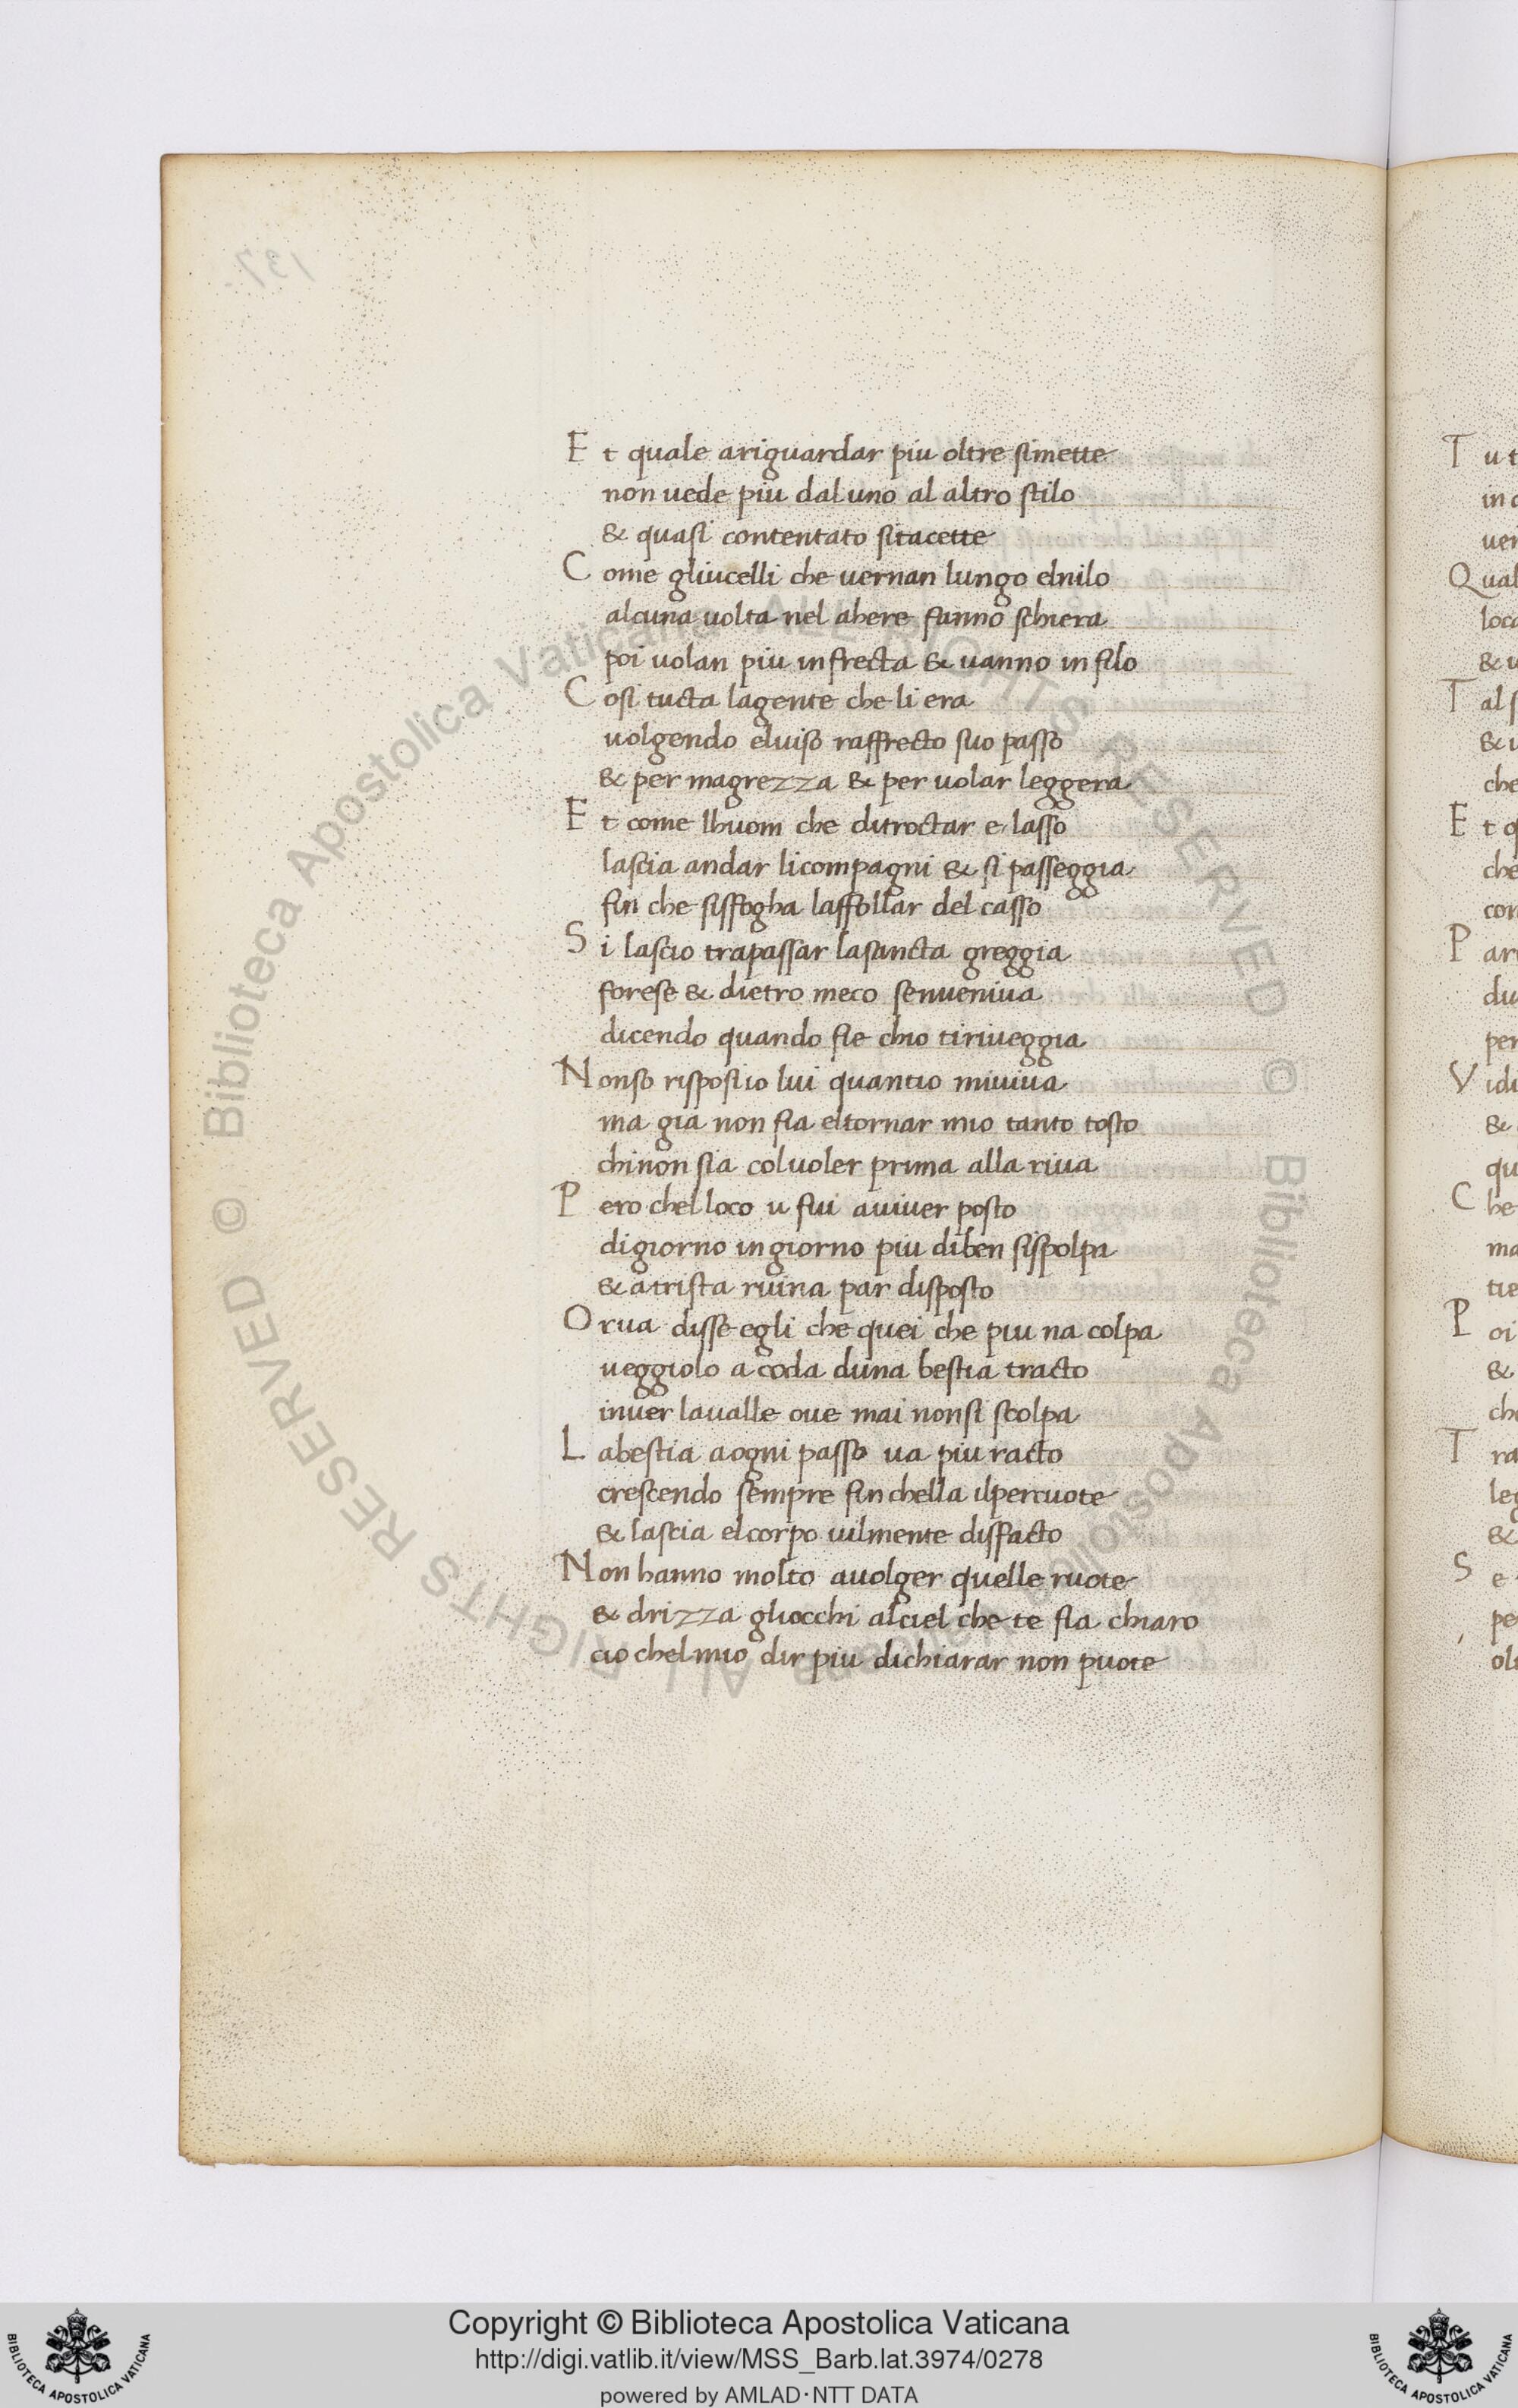 Et quale ariguardar piu oltre simette
non uede piu daluno al altro stilo
& quasi contentato sitacette
Come gliucelli che uernan lungo elnilo
alcuna uolta nel ahere fanno schiera
poi uolan piu infrecta & uanno in filo
Cosi tucta lagente che li era
uolgendo eluiso raffrecto suo passo
& per magrezza & per uolar leggera
Et come lhuom che ditroctar e lasso
lascia andar licompagni & si passeggia
fin che sisfogha laffollar del casso
Si lascio trapassar lasancta greggia
forese & dietro meco senueniua
dicendo quando fie chio tiriueggia
Nonso rispostio lui quantio miuiua
ma gia non fia eltornar mio tanto tosto
chinon sia coluoler prima alla riua
Pero chelloco u fui auiuer posto
digiorno in giorno piu diben sispolpa
& atrista ruina par disposto
Orua disse egli che quei che piu na colpa
ueggiolo a coda duna bestia tracto
inuer laualle oue mai nonsi scolpa
Labestia aogni passo ua piu racto
crescendo sempre finchella ilpercuote
& lascia elcorpo uilmente disfacto
Non hanno molto auolger quelle ruote
& drizza gliocchi alciel che te fia chiaro
cio chelmio dir piu dichiarar non puote
T ut
in
uer
Qual
loca
& u
Tal s
& u
che
Et q
che
con
Par
du
per
Vidi
&
qu
Che
ma
tie
Poi
&
ch
Tra
leg
&
Se
pe
olt
137
© Biblioteca Apostolica Vaticana ALL RIGHTS RESERVED © Biblioteca Apostolica Vaticana ALL RIGHTS RESERVED
Copyright © Biblioteca Apostolica Vaticana
http://digi.vatlib.it/view/MSS_Barb.lat.3974/0278
powered by AMLAD·NTT DATA
BIBLIOTECA APOSTOLICA VATICANA
BIBLIOTECA APOSTOLICA VATICANA